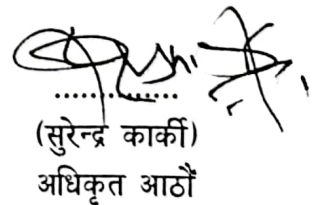 ..................
(सुरेन्द्र कार्की)
अधिकृत आठौं